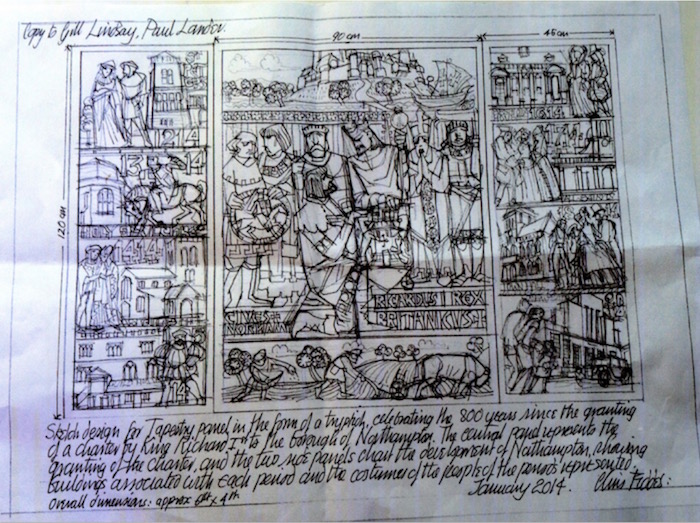 Copy to Gill Lindsay, Paul Lander.
90 cm
45 cm
120 cm
1214
1314
1414
14
1614
14
RICARDUS I REX
BRITANICUS
CIVES
NORHAM
Sketch design for Tapestry panel in the form of a tryptich, celebrating the 800 years since the granting
of a charter by King Richard Ist to the borough of Northampton. The central panel represents the
granting of the charter, and the two side panels chart the development of Northampton, showing
buildings associated with each period and the costumes of the people of the periods represented.
January 2014.
Overall dimensions: approx 6ft x 4ft